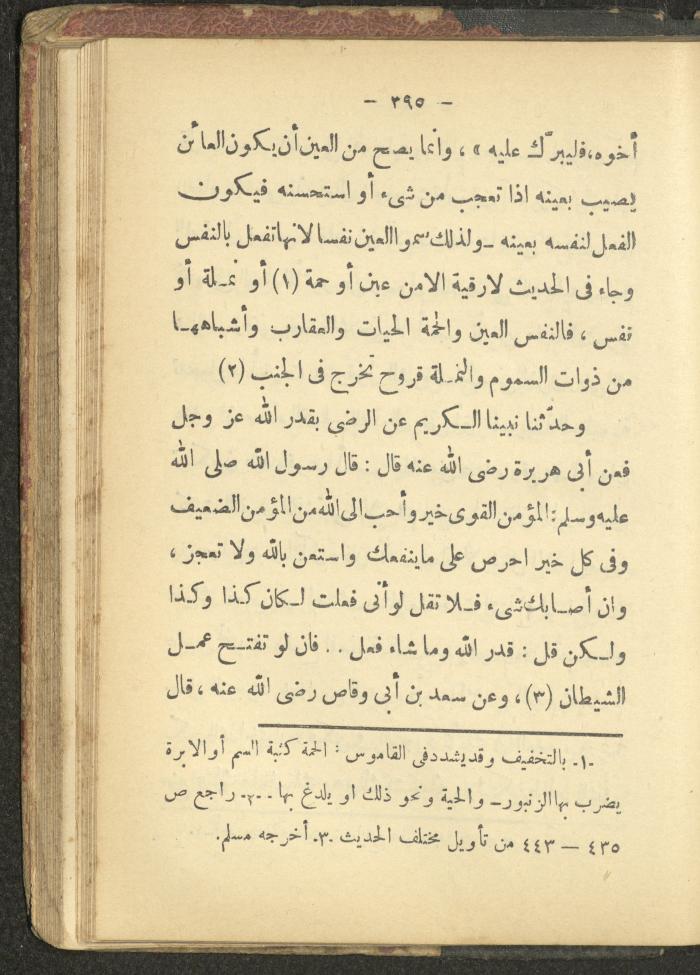 - ٣٩٥ -
أخوه، فليبرّك عليه » ، وانما يصح من العين أن يكون العائن
يصيب بعينه اذا تعجب من شىء أو استحسنه فيكون
الفعل لنفسه بعينه ـ ولذلك سموا العين نفسا لانها تفعل بالنفس
وجاء فى الحديث لا رقية الا من عين أو حمة (١) أو نمـلة أو
نفس ، فالنفس العين والحمة الحيات والعقارب وأشباههـا
من ذوات السموم والنمـلة قروح تخرج فى الجنب (٢)
وحدّثنا نبينا الـكريم عن الرضى بقدر الله عز وجل
فعن أبى هريرة رضى الله عنه قال : قال رسول الله صلى الله
عليه وسلم : المؤمن القوى خير وأحب الى الله من المؤمن الضعيف
وفى كل خير احرص على ما ينفعك واستعن بالله ولا تعجز ،
وان أصـابك شىء فـلا تقل لو أنى فعلت لـكان كـذا وكـذا
ولـكن قل : قدر الله وما شاء فعل . . فان لو تفتـح عمـل
الشيطان (٣) ، وعن سعد بن أبى وقاص رضى الله عنه ، قال
-١- بالتخفيف وقد يشدد فى القاموس : الحمة كثبة السم أو الابرة
يضرب بها الزنبور ـ والحية ونحو ذلك او يلدغ بها . -٢- راجع ص
٤٣٥ — ٤٤٣ من تأويل مختلف الحديث -٣- أخرجه مسلم.